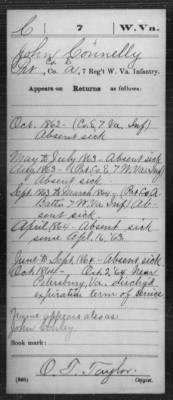 C | 7 | W. Va.
John Connelly
Pvt, Co. E A, 7 Reg't W. Va. Infantry.
Appears on Returns as follows:
Oct. 1862 - (Co. E, 7 Va. Inf)
Absent sick
May to July 1863 - Absent sick
Aug. 1863 - (Co. E 7 W. Va Inf)
Absent sick
Sept. 1863 to March 1864 - (Co. A
Batt'n 7 W. Va Inf) Ab-
sent sick.
April 1864 - Absent sick
since Apr. 16, '63
June to Sept. 1864 - Absent sick
Oct. 1864 - Oct. 2, '64 Near
Petersburg, Va. disch'g'd
expiration term of service
Name appears also as
John Conley
Book mark:
O. T. Taylor
Copyist.